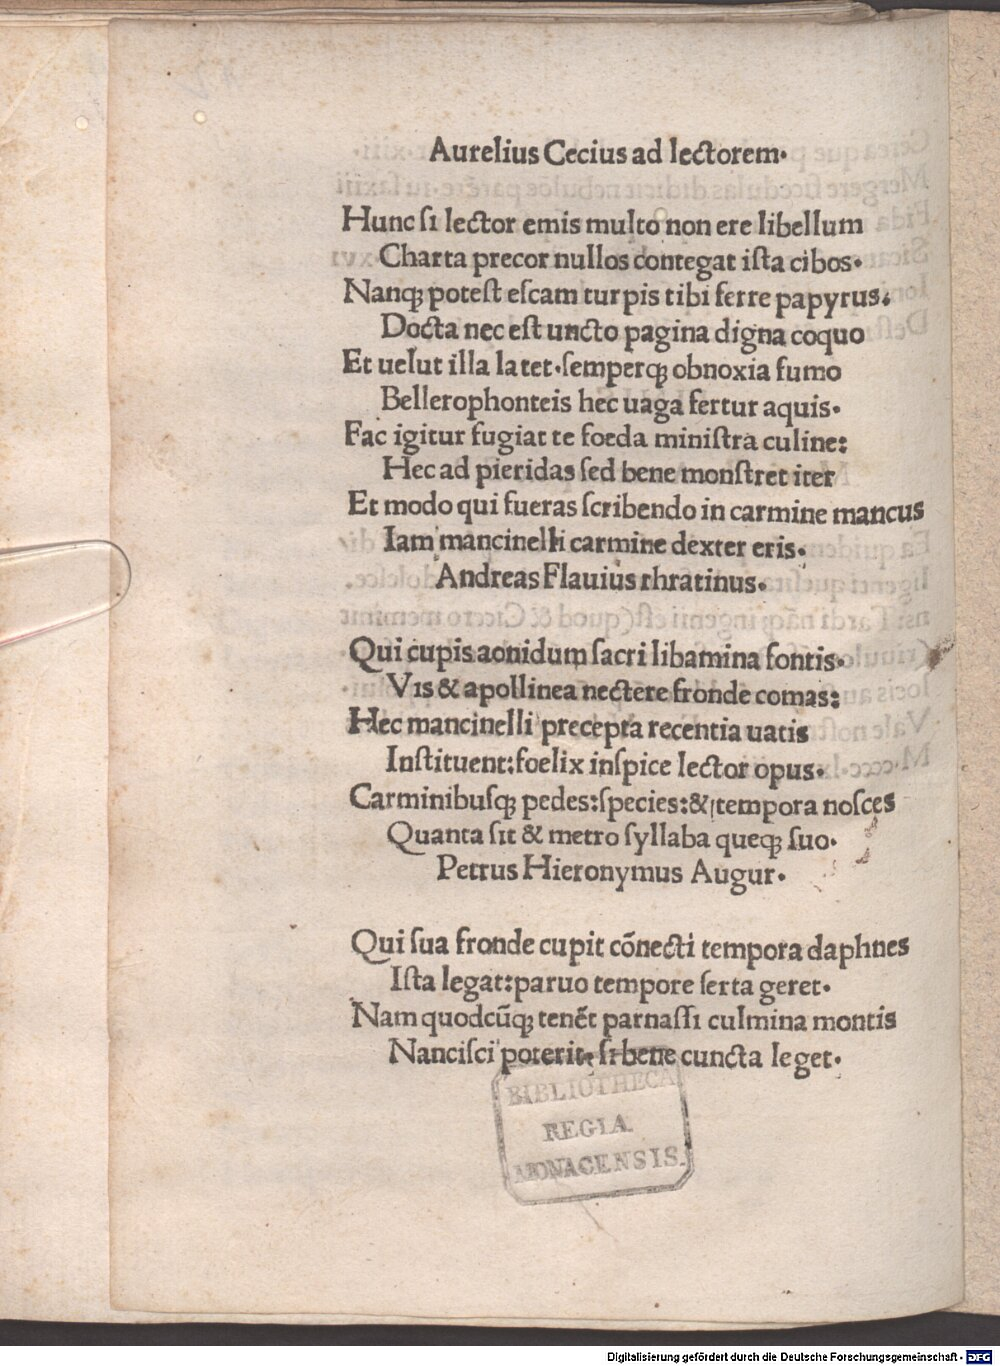 Aurelius Cecius ad lectorem·
Hunc ſi lector emis multo non ere libellum
Charta precor nullos contegat iſta cibos·
Nanqꝫ poteſt eſcam turpis tibi ferre papyrus.
Docta nec eſt uncto pagina digna coquo
Et uelut illa latet·ſemperqꝫ obnoxia fumo
Bellerophonteis hec uaga fertur aquis·
Fac igitur fugiat te foeda miniſtra culine:
Hec ad pieridas ſed bene monſtret iter
Et modo qui fueras ſcribendo in carmine mancus
Iam mancinelli carmine dexter eris·
Andreas Flauius rhratinus·
Qui cupis aonidum ſacri libamina fontis·
Vis & apollinea nectere fronde comas:
Hec mancinelli precepta recentia uatis
Inſtituent:foelix inſpice lector opus·
Carminibuſqꝫ pedes:ſpecies:& tempora noſces
Quanta ſit & metro ſyllaba queqꝫ ſuo·
Petrus Hieronymus Augur·
Qui ſua fronde cupit cōnecti tempora daphnes
Iſta legat:paruo tempore ſerta geret·
Nam quodcūqꝫ tenēt parnaſſi culmina montis
Nanciſci poterit, ſi bene cuncta leget·
BIBLIOTHECA
REGIA
MONACENSIS.
Digitalisierung gefördert durch die Deutsche Forschungsgemeinschaft - DFG